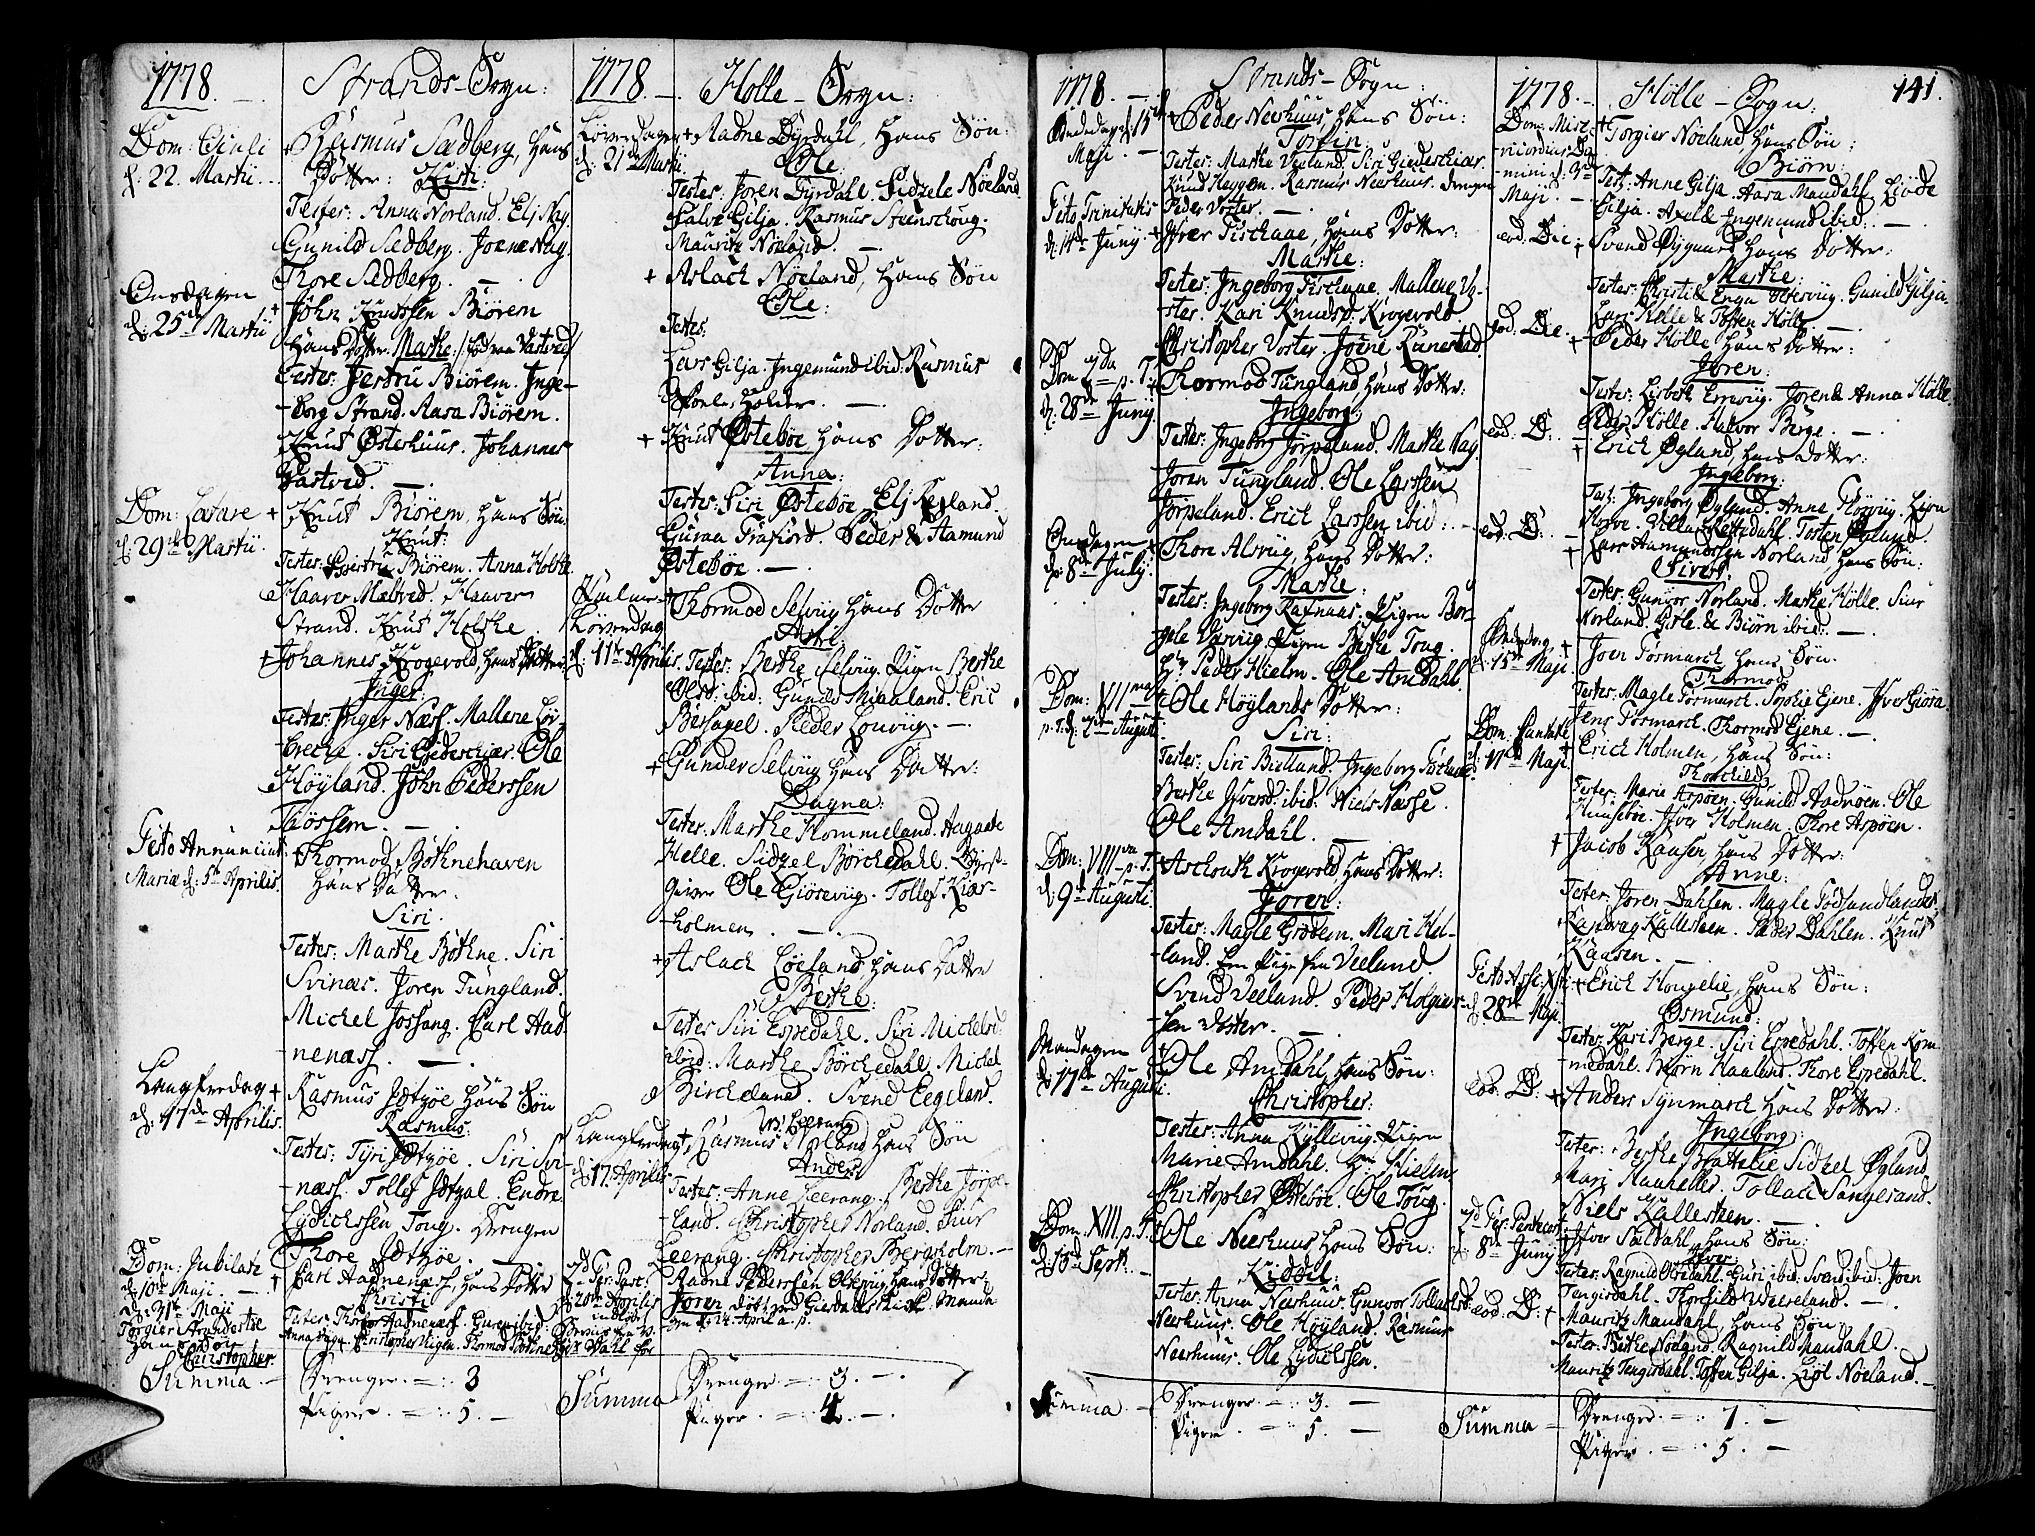 1778.
Strands-Sogn:
Dom: Oculi
d: 22. Martii.
Rasmus Sædberg, Hans
Dotter: Kisti:
Testes: Anna Norland. Elj Nag
Gunild Sædberg. Joen Nag.
Thore Sædberg.
Onsdagen
d: 25de Martii
John Knudssen Biörem
Hans Dotter: Marthe:
Testes: Jestru Biörem. Inge-
-borg Strand. Aasa Biörem.
Knut Østerhuus. Johannes
Vastved.
Dom: Lætare
d: 29de Martii.
+ Knut Biörem, Hans Søn
Knut:
Testes: Biörem. Anna Holthe
Haaver Mæbved. Haaver
Strand. Knud Holthe
+ Johannes Krogevold, Hans Dotter
Inger:
Testes: Inger Næss. Mallene Löv-
breche. Siri Giedeschiær. Ole
Höyland. John Pederssen
Tiössem.
Festo Annunciat:
Mariæ d: 5te Aprilis.
+ Thormod Böthnehaven
Hans Dotter
Siri.
Testes: Marthe Böthne. Siri
Svinæs. Joren Tungland.
Michel Jossang. Carl Aad-
nenæss.
Langfredag +
d: 17de Aprilis.
Rasmus Idtzöe Hans Søn
Rasmus:
Testes: Tyri Idtzöe. Siri Svi-
-næss. Tollef Idtzal. Endre
Lydichssen Toug. Drengen
Thore Idtzöe.
Dom: Jubilate
d: 10de Maji. +
Carl Aadnenæss, Hans Dotter
Christi
d: 31te Maji
Torgier Strandestöe
Hans Søn
Christopher.
Summa
Drenger = 3
Piger = 5.
1778.
Holle-Sogn:
Löverdagen
d: 21de Martii
+ Aadne Dyrdahl, Hans Søn:
Ole:
Testes: Joren Dyrdahl. Sidzele Nöeland
Salve Gilja. Rasmus Steenschoug.
Mauritz Nöeland.
+ Aslach Nöeland, Hans Søn
Ole:
Testes:
Lars Gilja. Ingemund ibid: Rasmus
Skoele-Holder.
+ Knut Østeböe Hans Dotter:
Anna:
Testes: Siri Østeböe. Elj Refland.
Guraa Frafiord. Peder & Aamund
Østeböe.
Palme-
Löverdag
d: 11te Aprilis.
+ Thormod Selvig Hans Dotter
Testes: Berthe Selvig. Pigen Berthe
Olsd: ibid: Gunild Miaaland. Eric
Bersagel. Peder Louvig.
+ Gunder Selvig Hans Dotter:
Dagna:
Testes: Marthe Hommeland. Aagaate
Helle. Sidzel Börchedahl.
Ole Giösevig. Tollef Kiær-
-holmen
+ Aslach Löeland Hans Dotter
Berthe:
Testes Siri Espedahl. Siri Michelsd:
ibid: Marthe Börchedahl. Michel
Bircheland. Svend Eegeland.
Langfredag
d: 17 Aprilis
+ Rasmus Norland Hans Søn
Anders
Testes: Anne Leerang. Berthe Jörpe-
-land. Christopher Norland. Siur
Leerang. Christopher Bergsholm.
2de Fer: Pasc:
d: 20de Aprilis
Aadne Pederssen Oltesvig Hans Dotter:
Joren
Summa
Drenger = 3.
Piger = 4.
1778.
Strands-Sogn:
15de
Maji.
Peder Neerhuus Hans Søn:
Torfin:
Testes: Marthe Veeland. Siri Giedeschiær.
Knud Heggem. Rasmus Neerhuus. Drengen
Peder Voster.
Festo Trinitatis
d: 14de Junij
+ Iver Fischaae, Hans Dotter:
Marthe:
Testes: Ingeborg Fischaae. Mallene Vo-
ster. Kari Knudsd: Krogevold.
Christopher Voster. Joene Runestad.
Dom 2da
p: T:
d: 28de Junij
+ Thormod Tungland, Hans Dotter:
Ingeborg
Testes: Ingeborg Jörpeland. Marthe Nag.
Joren Tungland. Ole Larssen
Jörpeland. Erich Larssen ibid:
Onsdagen
d: 8de Julij
+ Thore Alsvig, Hans Dotter:
Marthe:
Testes: Ingeborg Rafnaas. Pigen Bor-
gele Værvig. Pigen Berthe Toug.
Hr: Peder Hielm. Ole Amdahl.
Dom: VII
p. T. d: 2de August
Ole Höylands Dotter:
Siri:
Testes: Siri Butland. Ingeborg Fischaae.
Berthe Iversd: ibid: Niels Næsse.
Ole Amdahl.
Dom: VIII p. T.
d: 9de Augusti.
+ Aschouth Krogevold, Hans Dotter:
Joren:
Testes: Magle Grödem. Mari Hel-
land. Een Pige fra Veeland.
Svend Veeland. Peder Holgier-
-sen Voster.
Mandagen
d: 17de Augusti
Ole Amdahl, Hans Søn:
Christopher:
Testes: Anna Kyllevig. Pigen
Marie Amdahl. Hr: Hielm
Christopher Østeböe. Ole Toug.
Dom: XIII. p. T.
d: Sept.
Ole Neerhuus, Hans Søn:
Kiddil:
Testes: Anna Neerhuus. Gunvor Tollachsd:
Neerhuus. Ole Höyland. Rasmus
Neerhuus. Ole Lydichssen.
Summa
Drenger = 3.
Piger = 5.
1778.
Hölle-Sogn.
141.
Dom: Mise-
-ricordias Do-
mini d: 3de
Maji.
+ Torgier Nöeland, Hans Søn:
Biörn:
Test: Anne Gilja. Aasa Mandahl.
Gilja. Axel & Ingemund ibid:
eod: Die:
+ Svend Øygaard Hans Dotter:
Marthe:
Testes: Christi & Engu Oltesvig. Gunild Gilja.
Lars Hölle & Tosten Hölle.
eod: Die.
+ Peder Hölle Hans Dotter:
Joren:
Testes: Lisbeth Errevig. Joren & Anna Hölle.
Peder Hölle. Halvor Berge.
eod: D:
+ Erich Øyland, Hans Dotter:
Ingeborg:
Test: Ingeborg Øyland. Anne
Tosten Øyland.
eod: D:
+ Lars Aamundssen Norland Hans Søn:
Sivert.
Testes: Gunvor Norland. Marthe Hölle. Siur
Norland. Gitle & Biörn ibid:
d: 15de Maji
+ Joen Formarch Hans Søn.
Thormod
Testes: Magle Formarch. Sophie Eiene. Iver Giösæ.
Jens Formarch. Thormod Eiene.
Dom: Cantate
d: 17de Maji
Erich Holmen, Hans Søn:
Thorchild
Testes: Maria Aspöen. Gunild Aadnöen. Ole
Iver Holmen. Thore Aspöen.
+ Jacob Kaasen, Hans Dotter:
Anne:
Testes: Joren Dahlen. Magle Fodlandlandet.
Rasmus Kallesteen. Peder Dahlen. Knut
Kaasen.
Festo Asc: Xsti
d: 28de Maji
+ Erich Hougelie, Hans Søn:
Osmund:
Testes: Kari Berge. Siri Espedahl. Tosten Kom-
medahl. Biörn Haaland. Thore Espedahl.
eod: D:
+ Anders Synmarch Hans Dotter:
Ingeborg:
Testes: Berthe Brattelie. Sidzel Øyland
Mari Haaheller. Tollach Sangesand.
Niels Kallesteen.
2de Fer: Pentecost
d: 8de Junij
+ Iver Sældahl, Hans Søn:
Iver:
Testes: Ragnild Oftedahl. Guri ibid: Svend ibid: Joen
Tengisdahl. Thorchild
eod: D:
+ Mauritz Mandahl, Hans Søn:
Testes: Berthe Nöeland. Ragnild Mandahl.
Mauritz Tengisdahl. Tosten Gilja. Nöeland.
Summa
Drenger = 7.
Piger = 5.